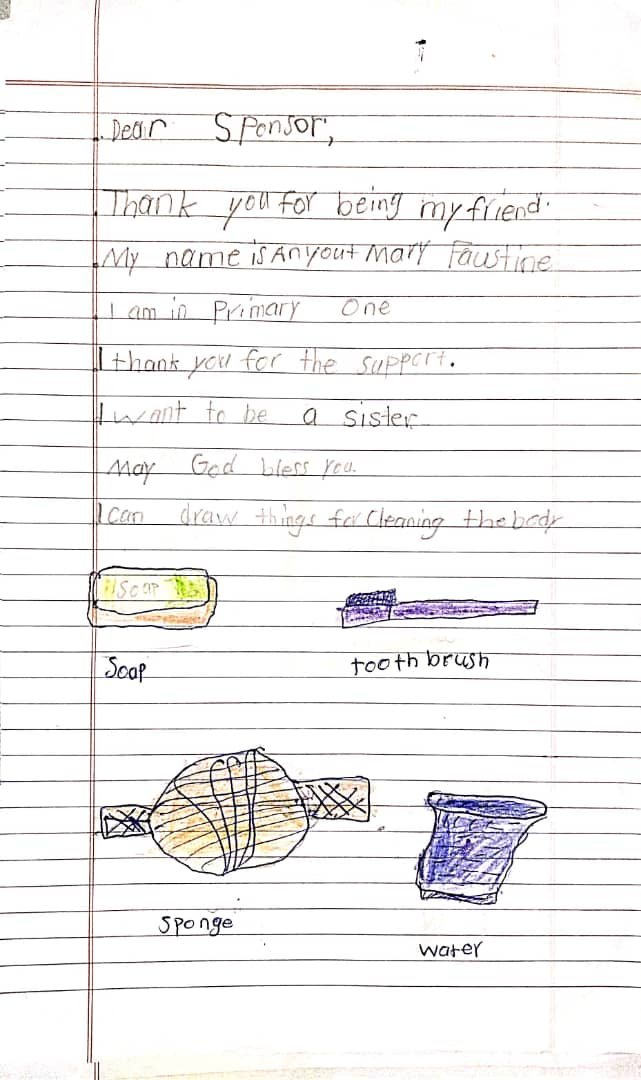 Dear Sponsor,
Thank you for being my friend.
My name is Anyout Mary Faustine
I am in Primary One
I thank you for the support.
I want to be a sister
May God bless you.
I can draw things for cleaning the body
Soap
Soap
tooth brush
Sponge
water